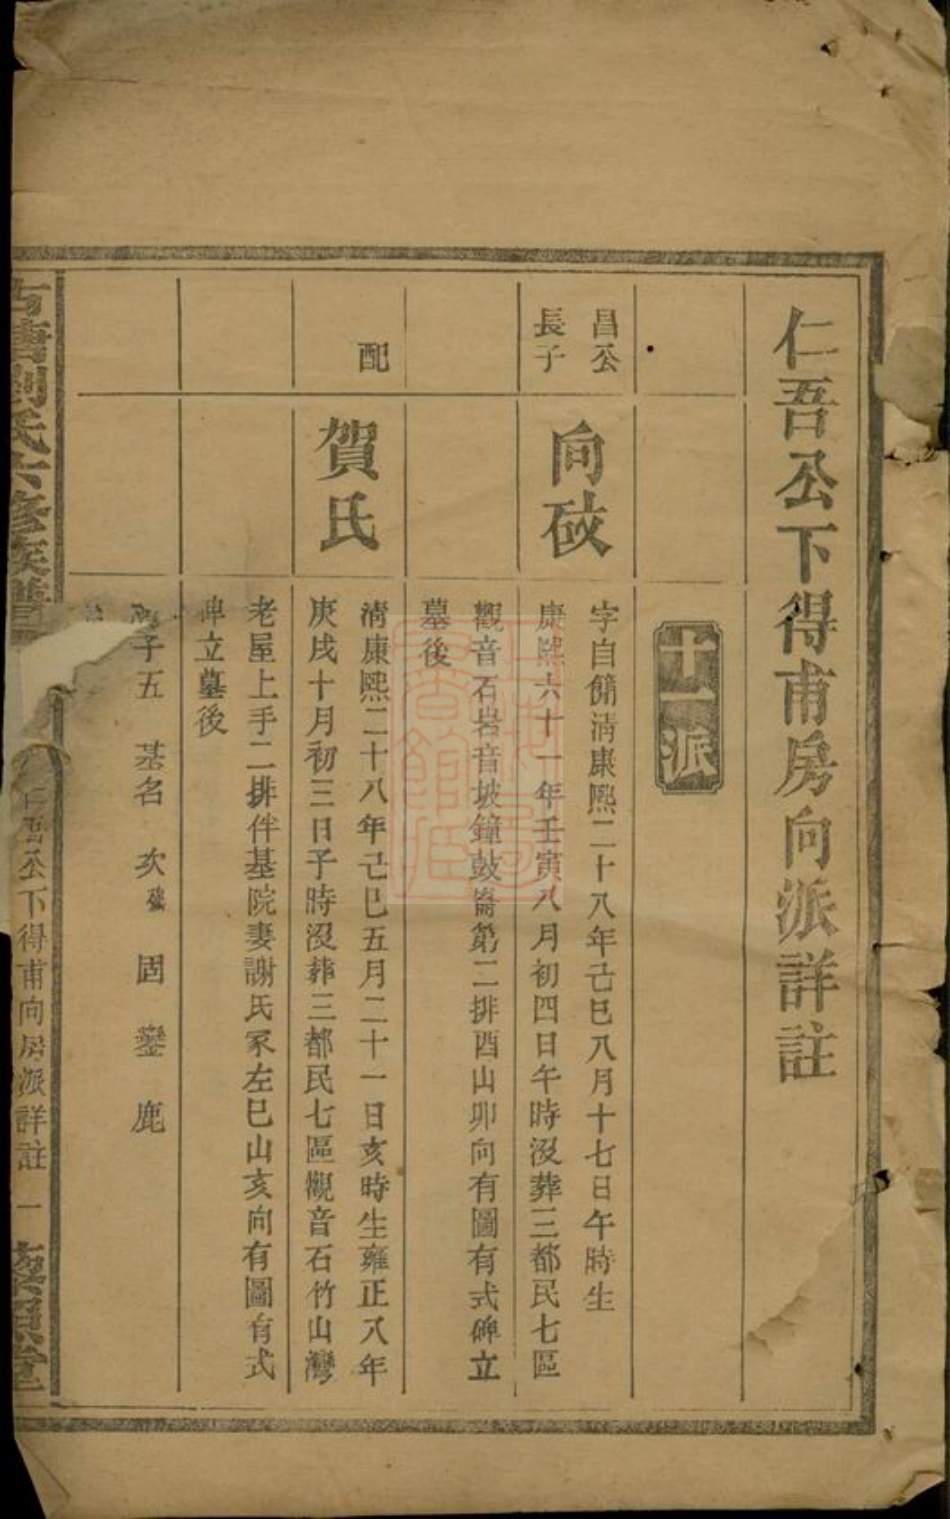 仁吾公下得甫房向派詳註
十一派
昌公
長子
向破
字自餙淸康熙二十八年己巳八月十七日午時生
康熙六十一年壬寅八月初四日午時沒葬三都民七區
觀音石岩音坡鐘鼓崙第二排酉山卯向有圖有式碑立
墓後
配
賀氏
淸康熙二十八年己巳五月二十一日亥時生雍正八年
庚戌十月初三日子時沒葬三都民七區觀音石竹山灣
老屋上手二排伴基院妻謝氏冢左巳山亥向有圖有式
碑立墓後
子五 基名 次 固 鑾 鹿
古塘劉氏六修族譜
公下得甫向房派詳註 一
堂